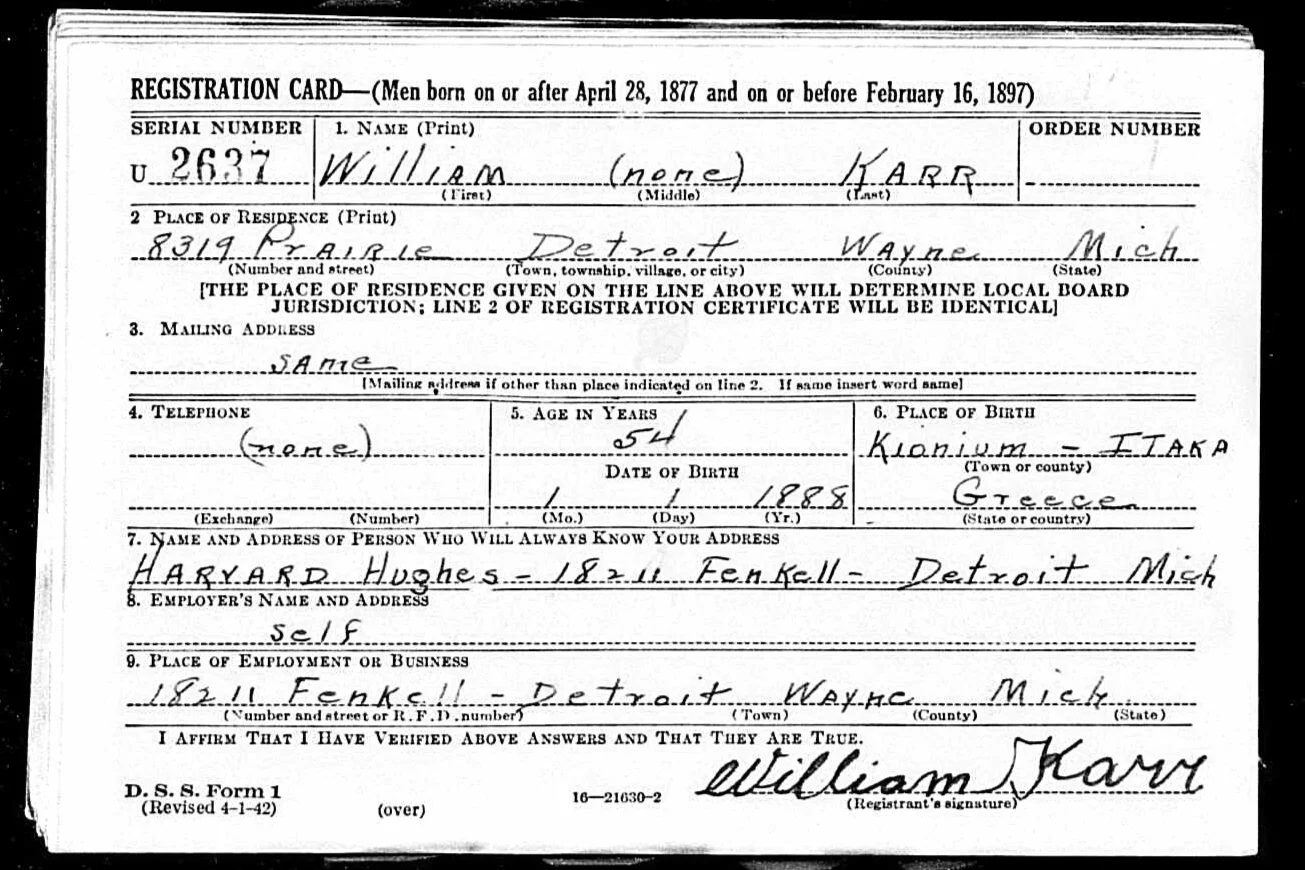 REGISTRATION CARD—(Men born on or after April 28, 1877 and on or before February 16, 1897)
SERIAL NUMBER 1. NAME (Print) ORDER NUMBER
U 2637 William (none) KARR
(First) (Middle) (Last)
2 PLACE OF RESIDENCE (Print)
8319 Prairie Detroit Wayne Mich
(Number and street) (Town, township, village, or city) (County) (State)
[THE PLACE OF RESIDENCE GIVEN ON THE LINE ABOVE WILL DETERMINE LOCAL BOARD
JURISDICTION; LINE 2 OF REGISTRATION CERTIFICATE WILL BE IDENTICAL]
3. MAILING ADDRESS
same
[Mailing address if other than place indicated on line 2. If same insert word same]
4. TELEPHONE 5. AGE IN YEARS 6. PLACE OF BIRTH
(none) 54 Kionium – ITAKA
DATE OF BIRTH (Town or county)
1 1 1888 Greece
(Exchange) (Number) (Mo.) (Day) (Yr.) (State or country)
7. NAME AND ADDRESS OF PERSON WHO WILL ALWAYS KNOW YOUR ADDRESS
HARVARD Hughes – 18211 Fenkell – Detroit Mich
8. EMPLOYER'S NAME AND ADDRESS
self
9. PLACE OF EMPLOYMENT OR BUSINESS
18211 Fenkell – Detroit Wayne Mich
(Number and street or R. F. D. number) (Town) (County) (State)
I AFFIRM THAT I HAVE VERIFIED ABOVE ANSWERS AND THAT THEY ARE TRUE.
William Karr
D. S. S. Form 1
(Revised 4-1-42) (over) 16—21630-2 (Registrant's signature)